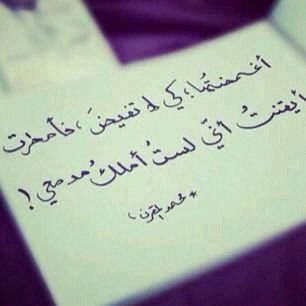 أغمضتُها؛ كي لا تفيضَ، فأمطرت
أيقنتُ أنّي لستُ أملكُ مدمعي!
* محمد المقرن